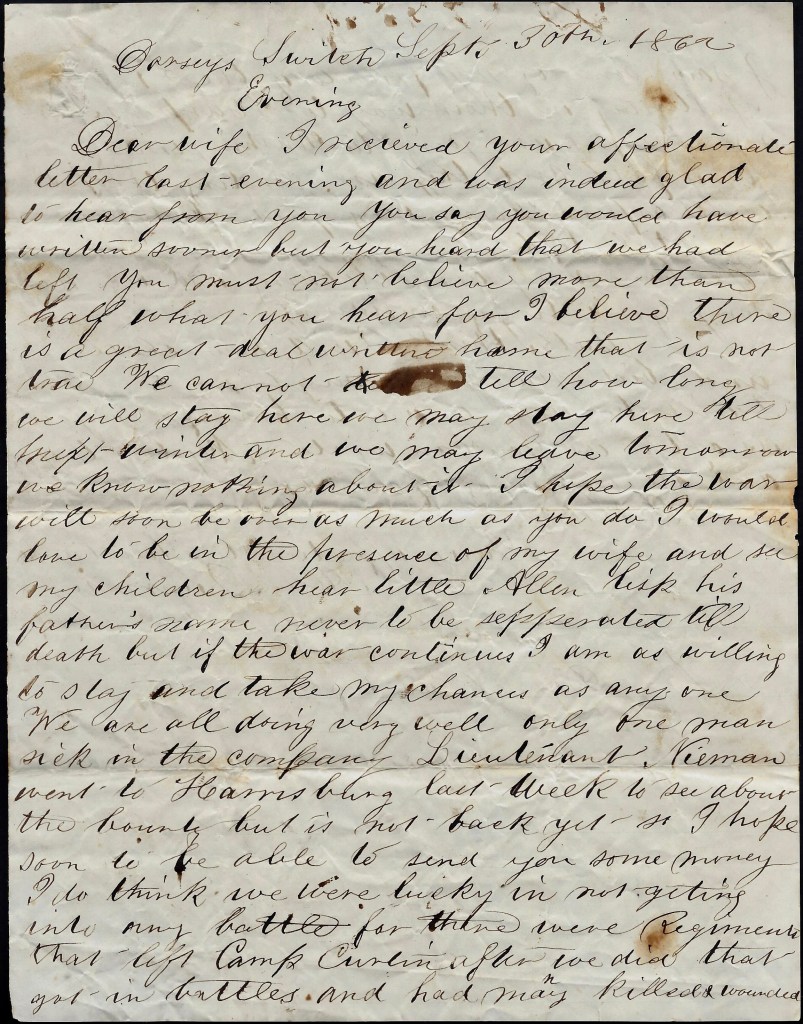 Dorseys Switch Sept 30th 1862
Evening
Dear wife I recieved your affectionate
letter last evening and was indeed glad
to hear from you You say you would have
written sooner but you heard that we had
left You must not believe more than
half what you hear for I believe there
is a great deal written home that is not
true We cannot tell how long
we will stay here we may stay here till
next winter and we may leave tomorrow
we know nothing about it I hope the war
will soon be over as much as you do I would
love to be in the presence of my wife and see
my children hear little Allen lisp his
father's name never to be sepperated till
death but if the war continues I am as willing
to stay and take my chances as any one
We are all doing very well only one man
sick in the company Lieutenant Nieman
went to Harrisburg last Week to see about
the bounty but is not back yet so I hope
soon to be able to send you some money
I do think we were lucky in not geting
into any battle for there were Regiments
that left Camp Curtin after we did that
got in battles and had many killed & wounded